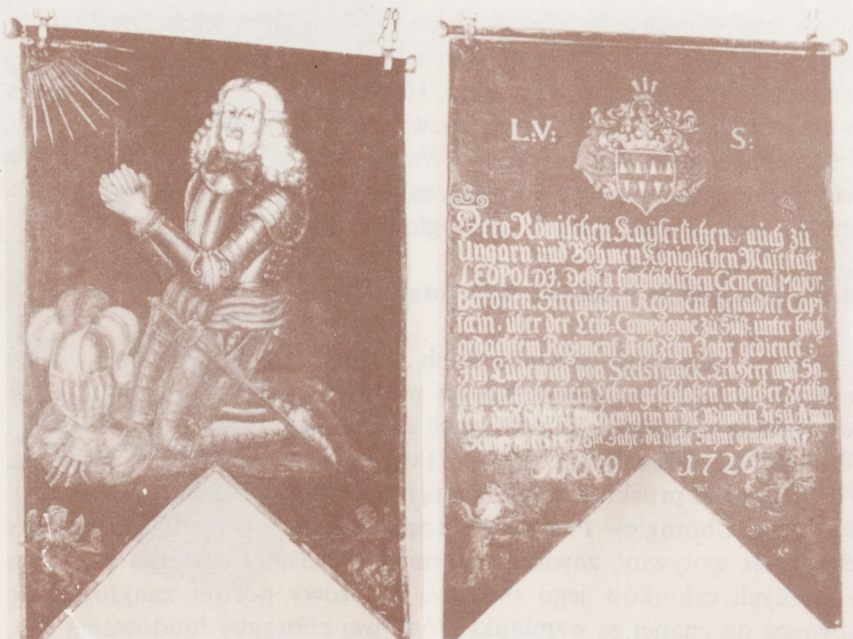 L.V: S:
Dero Römischen Kaÿserlichen, auch zu
Ungarn und Böhmen Königlichen Majestätt
LEOPOLDI, Deßen hochlöblichen General Major
Baronen, Regiment, bestaldter Capi
tein, über der Leib-Compagnie zu Füß, unter hoch
gedachtem Regiment Achtzehn Jahr gedienet:
Ich Ludewich von Seelstranck, Erbherr auff
habe mein Leben geschloßen in dießer Zeittig,
keit, und ewig ein in die Wunden Jesu Amen
Jahr, da dieße Fahne gemahlt
ANNO, 1726